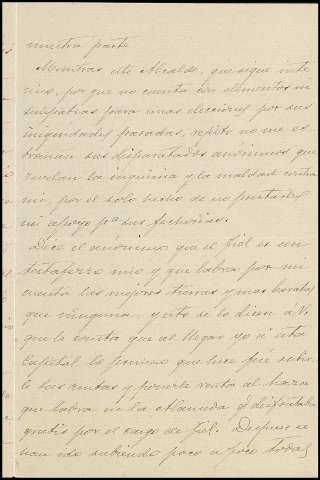 nuestra parte
Mientras este Alcalde, que sigue inte
rino, por que no cuenta con elementos ni
simpatias para unas elecciones por sus
iniquidades pasadas, repito no me es
trañan sus disparatados anónimos, que
revelan la inquina y la maldad contra
mi, por el solo hecho de no prestarles
mi apoyo pª sus fechorias.
Dice el anónimo que el fiel es un
testaferro mio y que labra por mi
cuenta las mejores tierras y mas baratas
que ninguna, y esto se lo dicen a V.
que le consta que al llegar yo a esta
Capital lo primero que hice fué subir
le las rentas y ponerle renta al haza
que labra en la Alameda q disfrutaba
gratis por el cargo de fiel. Despues se
han ido subiendo poco a poco todas